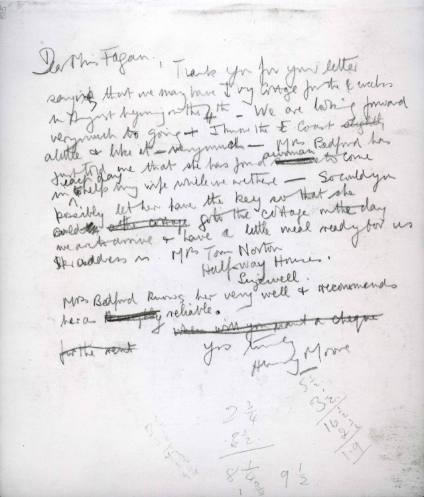 Dear Miss Fagan,
Thank you for your letter
saying that we may have cottage for the 2 weeks
in August beginning on the 4th – We are looking forward
very much to going – I know the E Coast slightly
a little & like it – very much – Mrs Bedford has
just told me that she has found a woman to come
in each day to help my wife while we are there – So could you
possibly let her have the key so that she
could go to the cottage on the day
we arrive & have a little meal ready for us
Her address is Mrs Tom Norton
Halfway House.
Sizewell.
Mrs Bedford knows her very well & recommends
her as reliable.
when will you want a cheque
for the rent
Yrs truly
Henry Moore
5 1/2
3 1/2
2 3/4
8 1/4
9 1/2